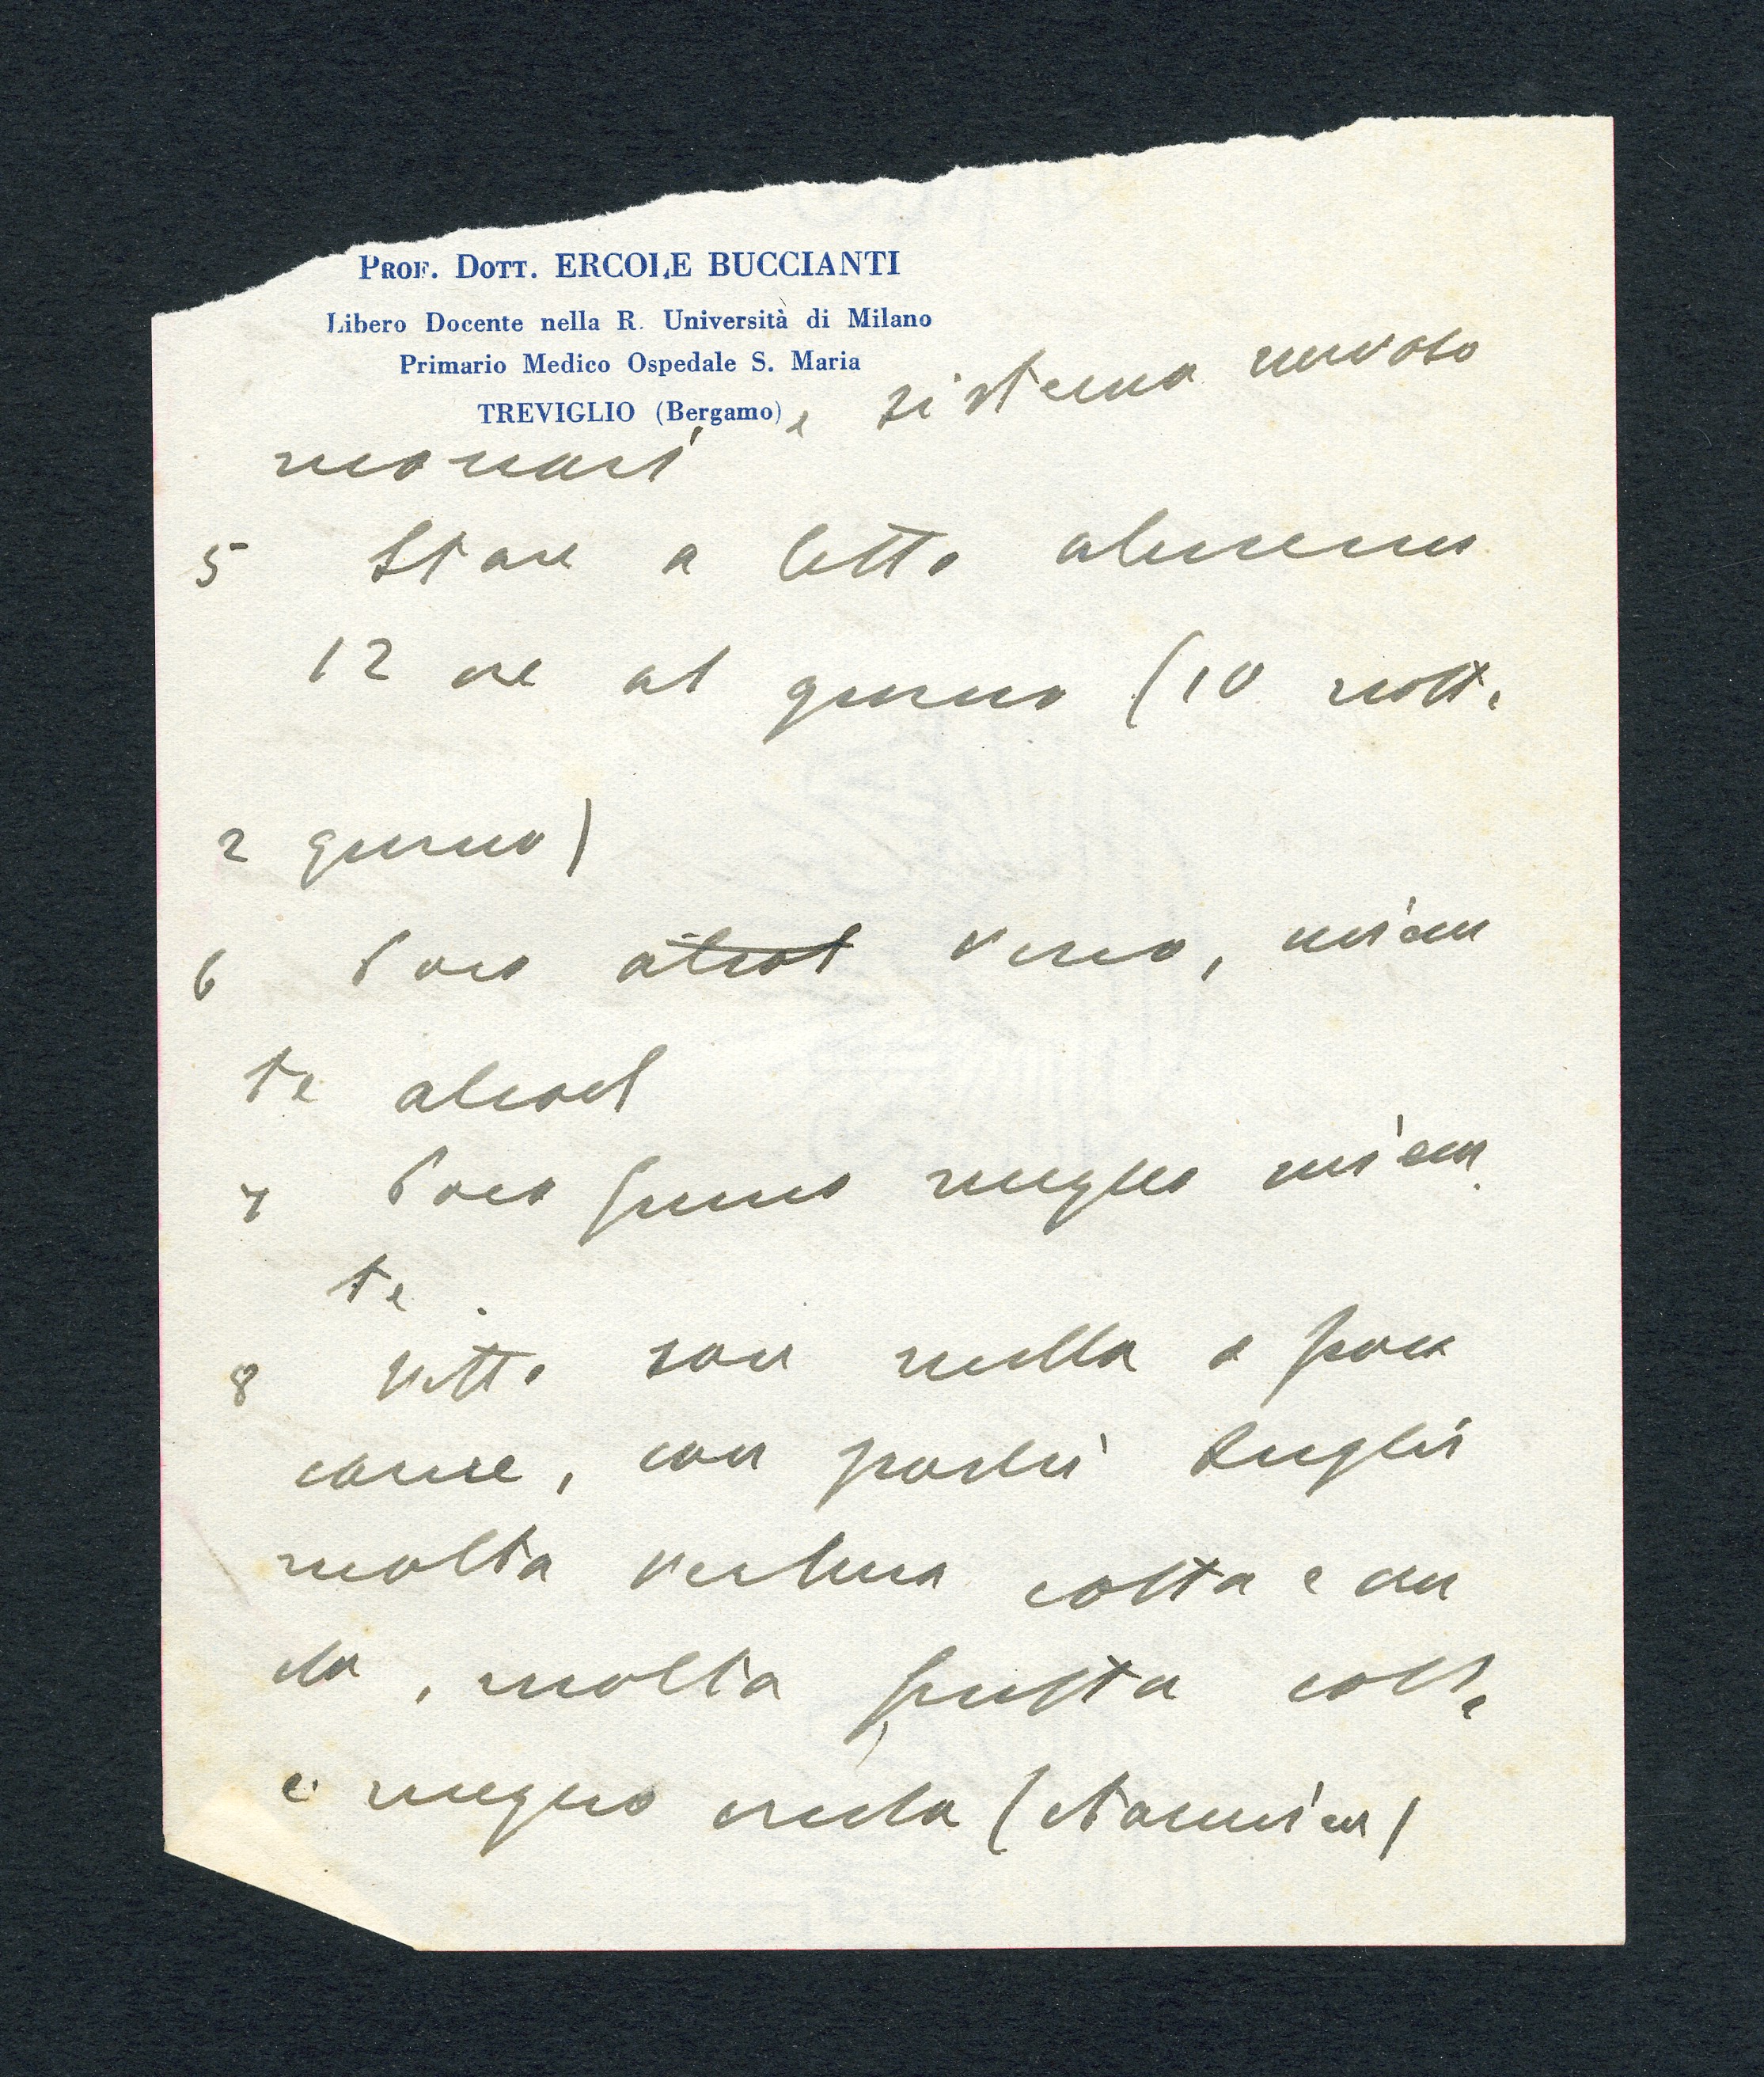 PROF. DOTT. ERCOLE BUCCIANTI
Libero Docente nella R. Università di Milano
Primario Medico Ospedale S. Maria
TREVIGLIO (Bergamo)
monari e sistema nervoso
5 Stare a letto almeno
12 ore al giorno (10 notte
2 giorno)
6 Poco alcool vino, nien
te alcool
7 Poco fumo meglio nien
te
8 Vitto con nulla o poca
carne, con pochi
molta verdura cotta e cru
da, molta frutta cotta
e meglio cruda (vitamine)